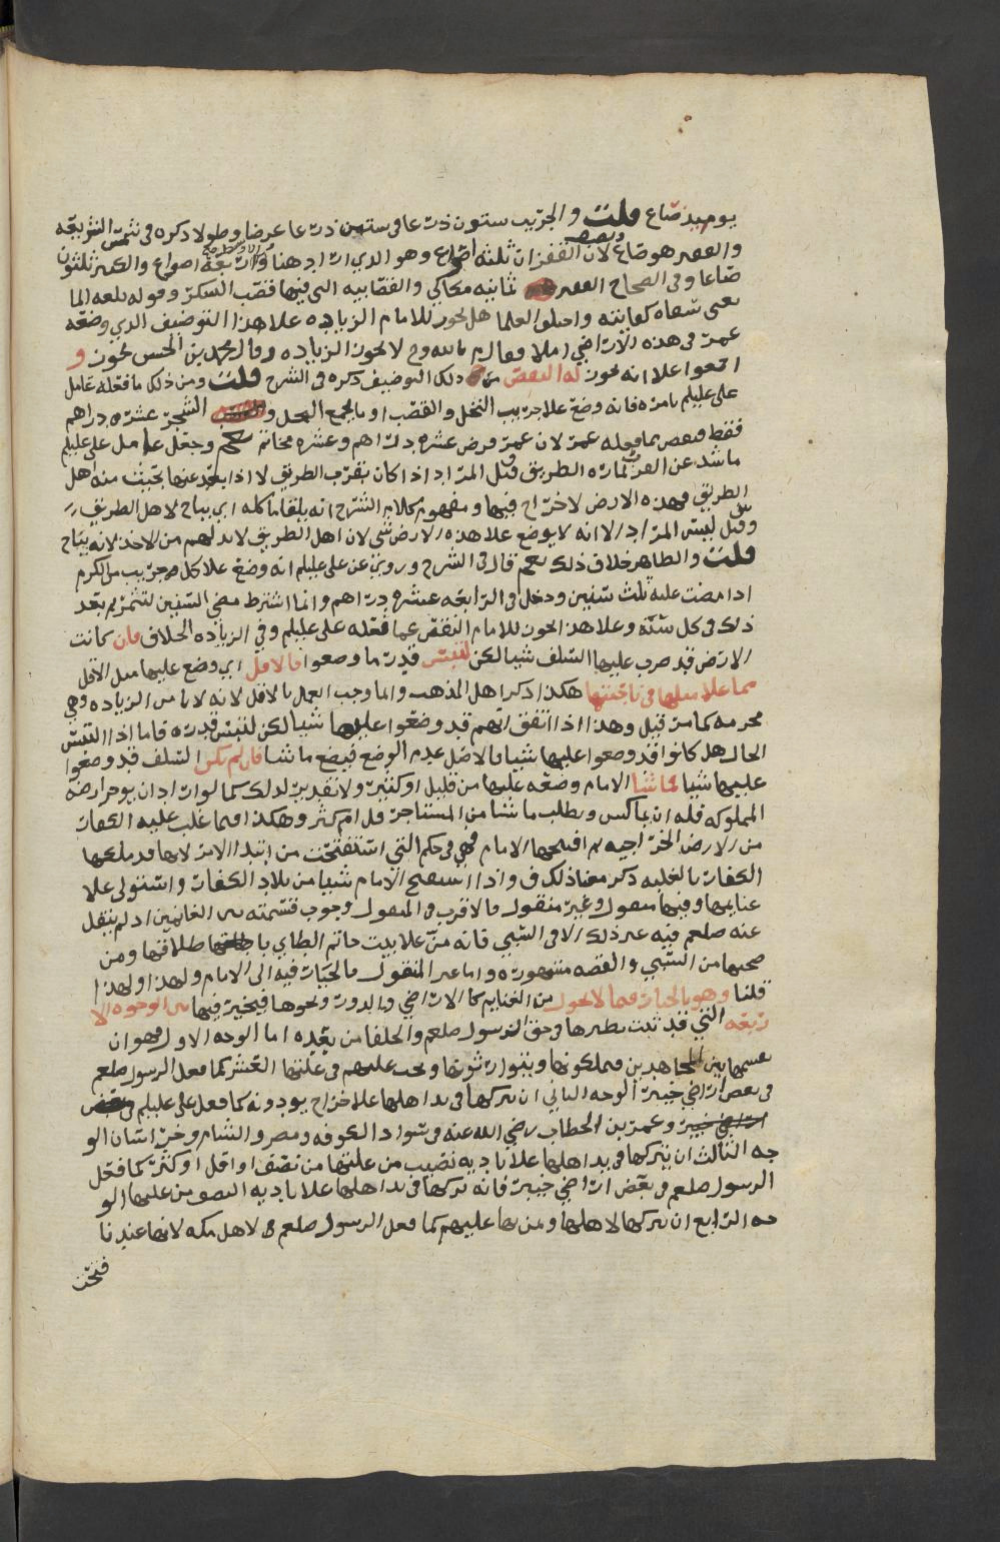 يوميذ صاع قلت والجريب ستون ذراعا في ستين ذراعا عرضا وطولا ذكره في شمس الشريعه
والقفيز هو صاع ونصف لان القفيزان ثلثه اصواع وهو الذي اراد هنا اربعه اصواع والكر ثلثون
صاعا وفي الصحاح القفيز ثمانيه مكاكي والقصابيه التي فيها قصب السكر وقوله بلغه الما
يعني سقاه كفايته واختلف العلما هل يجوز للامام الزياده علا هذا التوضيف الذي وضعه
عمر في هذه الاراضي ام لا فقال م بالله وح لا يجوز الزياده وقال محمد بن الحسن يجوز و
اجمعوا علا انه يجوز له النقص من ذلك التوضيف ذكره في الشرح قلت ومن ذلك ما فعله عامل
علي عليلم بامره فانه وضع علا جريب النخل والقصب او ما يجمع النخل و الشجر عشره دراهم
فقط فنقص مما فعله عمر لان عمر فرض عشره دراهم وعشره مخاتم وجعل عامل علي عليلم
ما شذ عن القرب لماره الطريق قيل المراد اذا كان بقرب الطريق لا اذا بعد عنها بحيث منه اهل
الطريق فهذه الارض لا خراج فيها ومفهوم كلام الشرح انه يلقا ما كله اي يباح لاهل الطريق
وقيل ليس المراد الا انه لا يوضع علا هذه الارض شي لان اهل الطريق لابد لهم من الاخذ لانه يباح
قلت والظاهر خلاف ذلك نعم قال في الشرح وروي عن علي عليلم انه وضع علا كل جريب من الكرم
اذا مضت عليه ثلث سنين ودخل في الرابعه عشره دراهم وانما اشترط مضي السنين لتثمر ثم بعد
ذلك في كل سنه وعلا هذا يجوز للامام النقص عما فعله علي عليلم وفي الزياده الخلاف فان كانت
الارض قد ضرب عليها السلف شيا لكن التبس قدر ما وضعوا فالاقل اي وضع عليها مثل الاقل
مما علا مثلها في ناحيتها هكذا ذكر اهل المذهب وانما وجب العمل بالاقل لانه لا يامن الزياده وهي
محرمه كما من قبل وهذا اذا اتفق انهم قد وضعوا عليها شيا لكن التبس قدره فاما اذا التبس
الحال هل كانوا قد وضعوا عليها شيا فالاصل عدم الوضع فيضع ما شا فان لم يكن السلف قد وضعوا
عليها شيا فما شا الامام وضعه عليها من قليل او كثير ولا تقدير لذلك كما لو اراد ان يوجر ارضه
المملوكه فله ان يماكس ويطلب ما شا من المستاجر قل ام كثر وهكذا فيما غلب عليه الكفار
من الارض الخراجيه ثم افتتحها الامام فهي في حكم التي استفتحت من ابتدا الامر لانها قد ملكها
الكفار بالغلبه ذكر معنا ذلك ف واذا استفتح الامام شيا من بلاد الكفار واستولى علا
غنايمها وفيها منقول وغير منقول فالاقرب في المنقول وجوب قسمته بين الغانمين اذ لم ينقل
عنه صلعم فيه غير ذلك الا في السبي فانه من علا بيت حاتم الطاي باطلاقها ومن
صحبها من السبي والقصه مشهوره واما غير المنقول فالخيار فيه الى الامام ولهذا
قلنا وهو بالخيار فيما لا يحول من الغنايم كالاراضي والدور ونحوها فيخير فيها بين الوجوه الا
ربعه التي قد ثبت نظيرها في حق الرسول صلعم والخلفا من بعده اما الوجه الاول فهو ان
يقسمها بين المجاهدين فيملكونها ويتوارثونها ويجب عليهم في غلتها العشر كما فعل الرسول صلعم
في بعض اراضي خيبر الوجه الثاني ان يتركها في يد اهلها علا خراج يودونه كما فعل علي عليلم
وعمر بن الخطاب رضي الله عنه في سواد الكوفه ومصر والشام وخراسان الو
جه الثالث ان يتركها في يد اهلها علا تاديه نصيب من غلتها من نصف او اقل او كثر كما فعل
الرسول صلعم في بعض اراضي خيبر فانه تركها في يد اهلها علا تاديه النصف من غلتها الو
جه الرابع ان يتركها لاهلها ويمن بها عليهم كما فعل الرسول صلعم في لاهل مكه لانها عندنا
فتحت